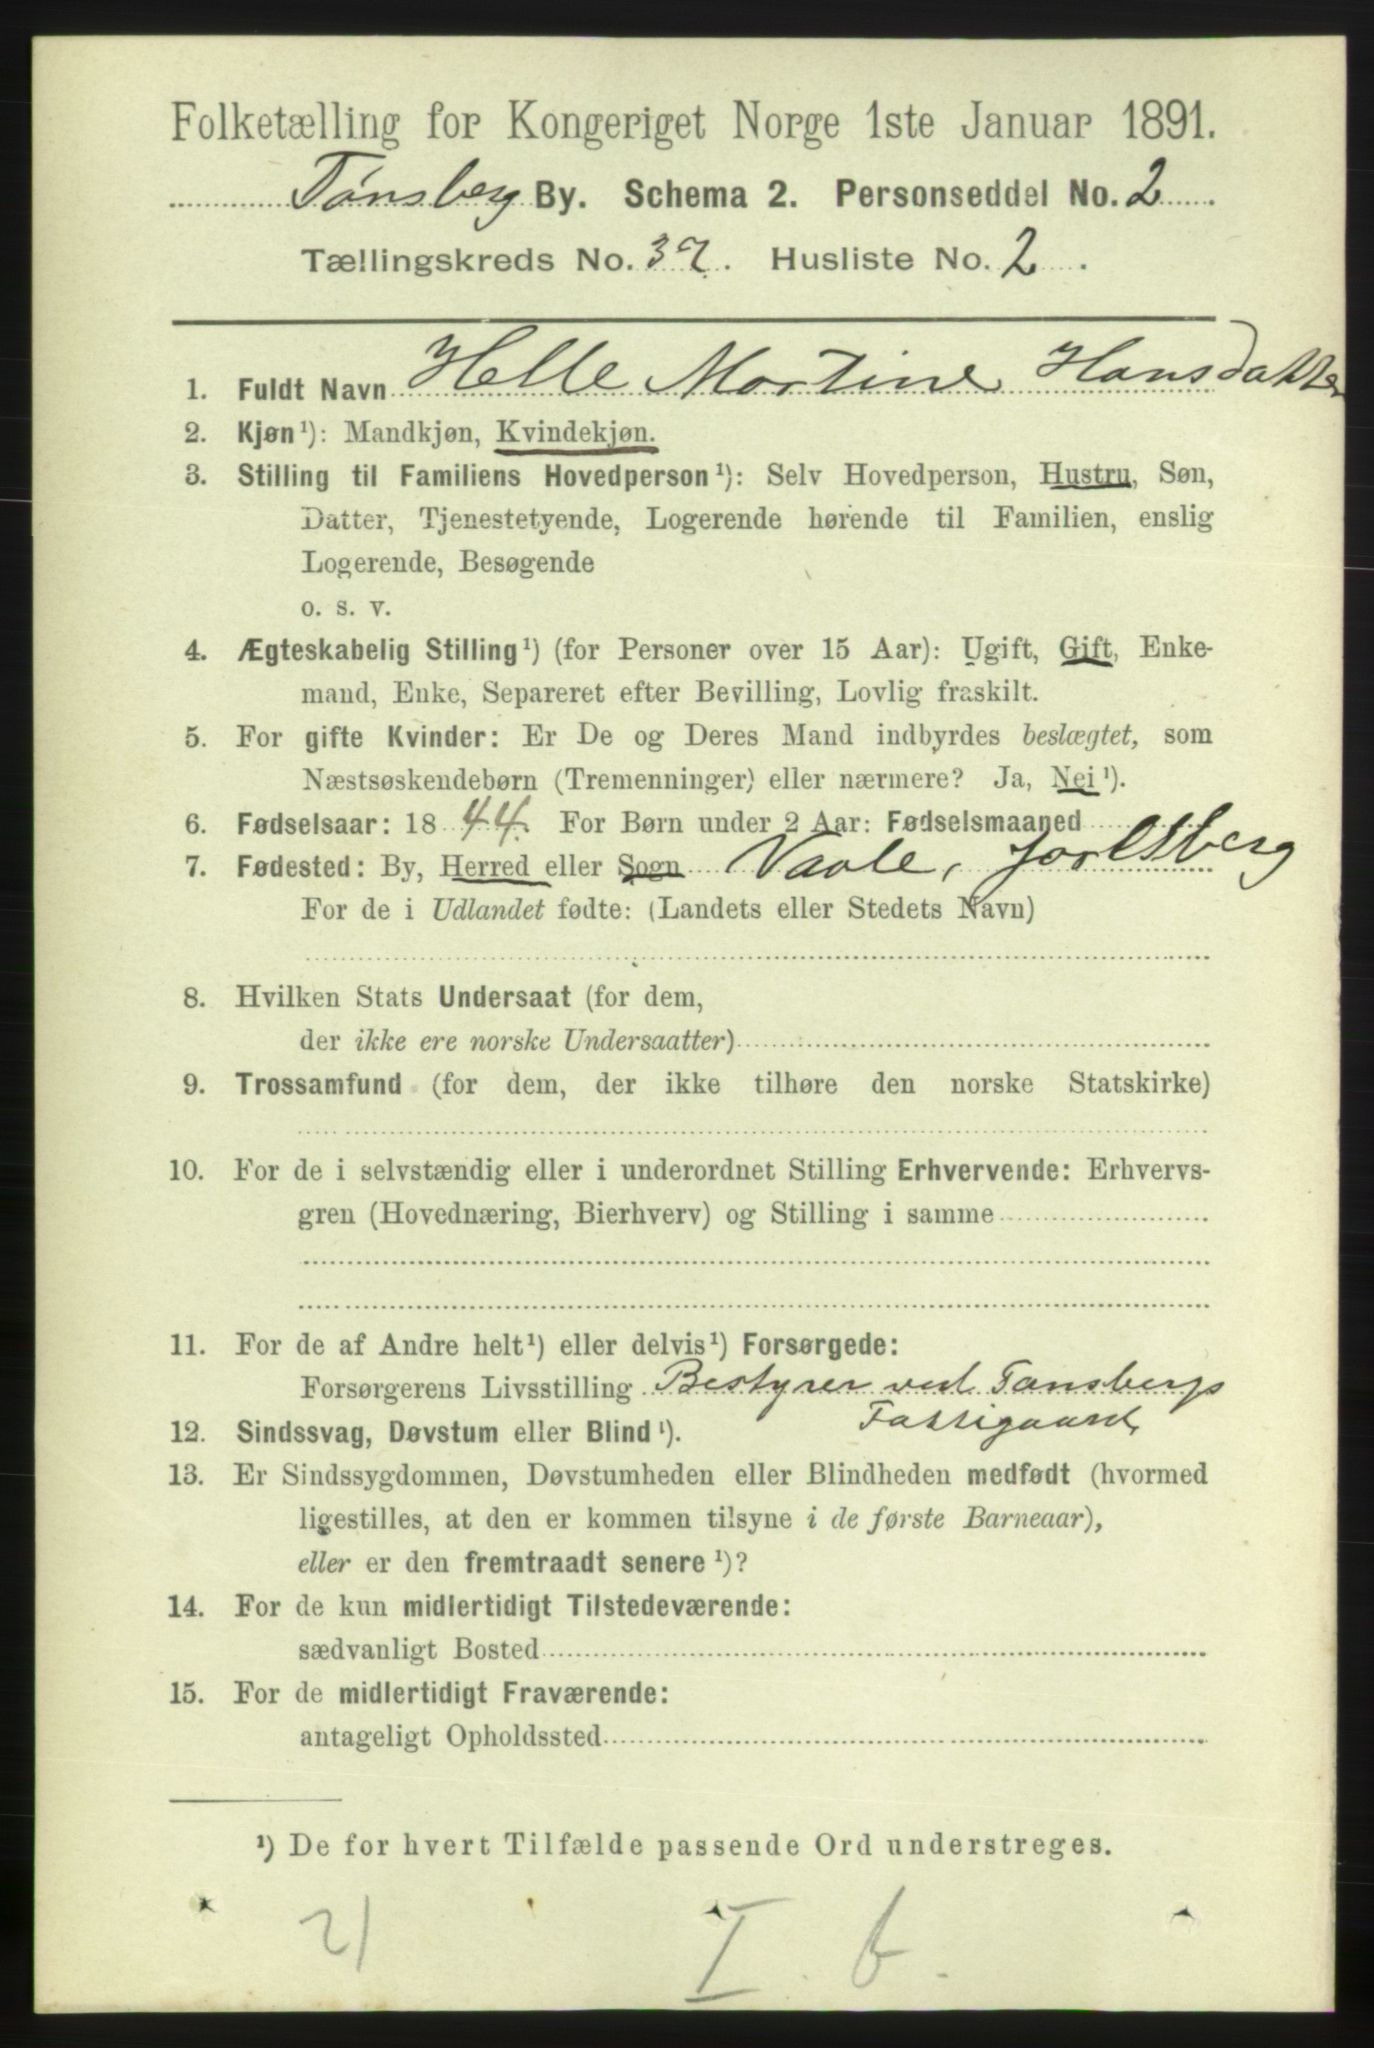 Folketælling for Kongeriget Norge 1ste Januar 1891.
Tønsberg By. Schema 2. Personseddel No. 2
Tællingskreds No. 37. Husliste No. 2.
1. Fuldt Navn Helle Martine Hansdatter
2. Kjøn¹): Mandkjøn, Kvindekjøn.
3. Stilling til Familiens Hovedperson¹): Selv Hovedperson, Hustru, Søn,
Datter, Tjenestetyende, Logerende hørende til Familien, enslig
Logerende, Besøgende
o. s. v.
4. Ægteskabelig Stilling¹) (for Personer over 15 Aar): Ugift, Gift, Enke-
mand, Enke, Separeret efter Bevilling, Lovlig fraskilt.
5. For gifte Kvinder: Er De og Deres Mand indbyrdes beslægtet, som
Næstsøskendebørn (Tremenninger) eller nærmere? Ja, Nei¹).
6. Fødselsaar: 1844. For Børn under 2 Aar: Fødselsmaaned
7. Fødested: By, Herred eller Sogn Vaale, Jarlsberg
For de i Udlandet fødte: (Landets eller Stedets Navn)
8. Hvilken Stats Undersaat (for dem,
der ikke ere norske Undersaatter)
9. Trossamfund (for dem, der ikke tilhøre den norske Statskirke)
10. For de i selvstændig eller i underordnet Stilling Erhvervende: Erhvervs-
gren (Hovednæring, Bierhverv) og Stilling i samme
11. For de af Andre helt¹) eller delvis¹) Forsørgede:
Forsørgerens Livsstilling Bestyrer ved Tønsbergs
Fattigaard
12. Sindssvag, Døvstum eller Blind¹).
13. Er Sindssygdommen, Døvstumheden eller Blindheden medfødt (hvormed
ligestilles, at den er kommen tilsyne i de første Barneaar),
eller er den fremtraadt senere¹)?
14. For de kun midlertidigt Tilstedeværende:
sædvanligt Bosted
15. For de midlertidigt Fraværende:
antageligt Opholdssted
¹) De for hvert Tilfælde passende Ord understreges.
21 I. b.